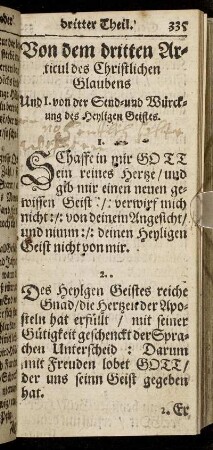 dritter Theil. 335
Von dem dritten Ar-
ticul des Christlichen
Glaubens
Und I. von der Send- und Würck-
ung des Heyligen Geistes.
1.
SChaffe in mir GOTT
ein reines Hertze / und
gib mir einen neuen ge-
wissen Geist /: verwirff mich
nicht :/: von deinem Angesicht /
und nimm :/: deinen Heyligen
Geist nicht von mir.
2.
Des Heylgen Geistes reiche
Gnad / die Hertzen der Apo-
steln hat erfüllt / mit seiner
Gütigkeit geschenckt der Spra-
chen Unterscheid : Darum
mit Freuden lobet GOTT /
der uns seinn Geist gegeben
hat.
2. Er